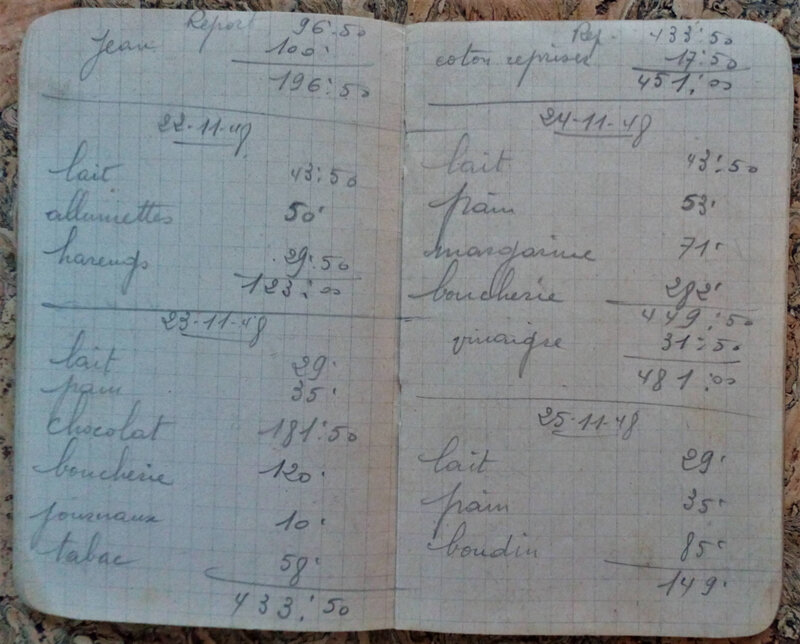 Report 96:50
Jean 100'
196:50
22-11-48
lait 43:50
allumettes 50'
harengs 29:50
123:00
23-11-48
lait 29'
pain 35'
chocolat 181:50
boucherie 120'
journaux 10'
tabac 58'
433:50
Rep. 433:50
coton reprises 17:50
451:00
24-11-48
lait 43:50
pain 53'
margarine 71'
boucherie 282'
449:50
vinaigre 31:50
481:00
25-11-48
lait 29'
pain 35'
boudin 85'
149'